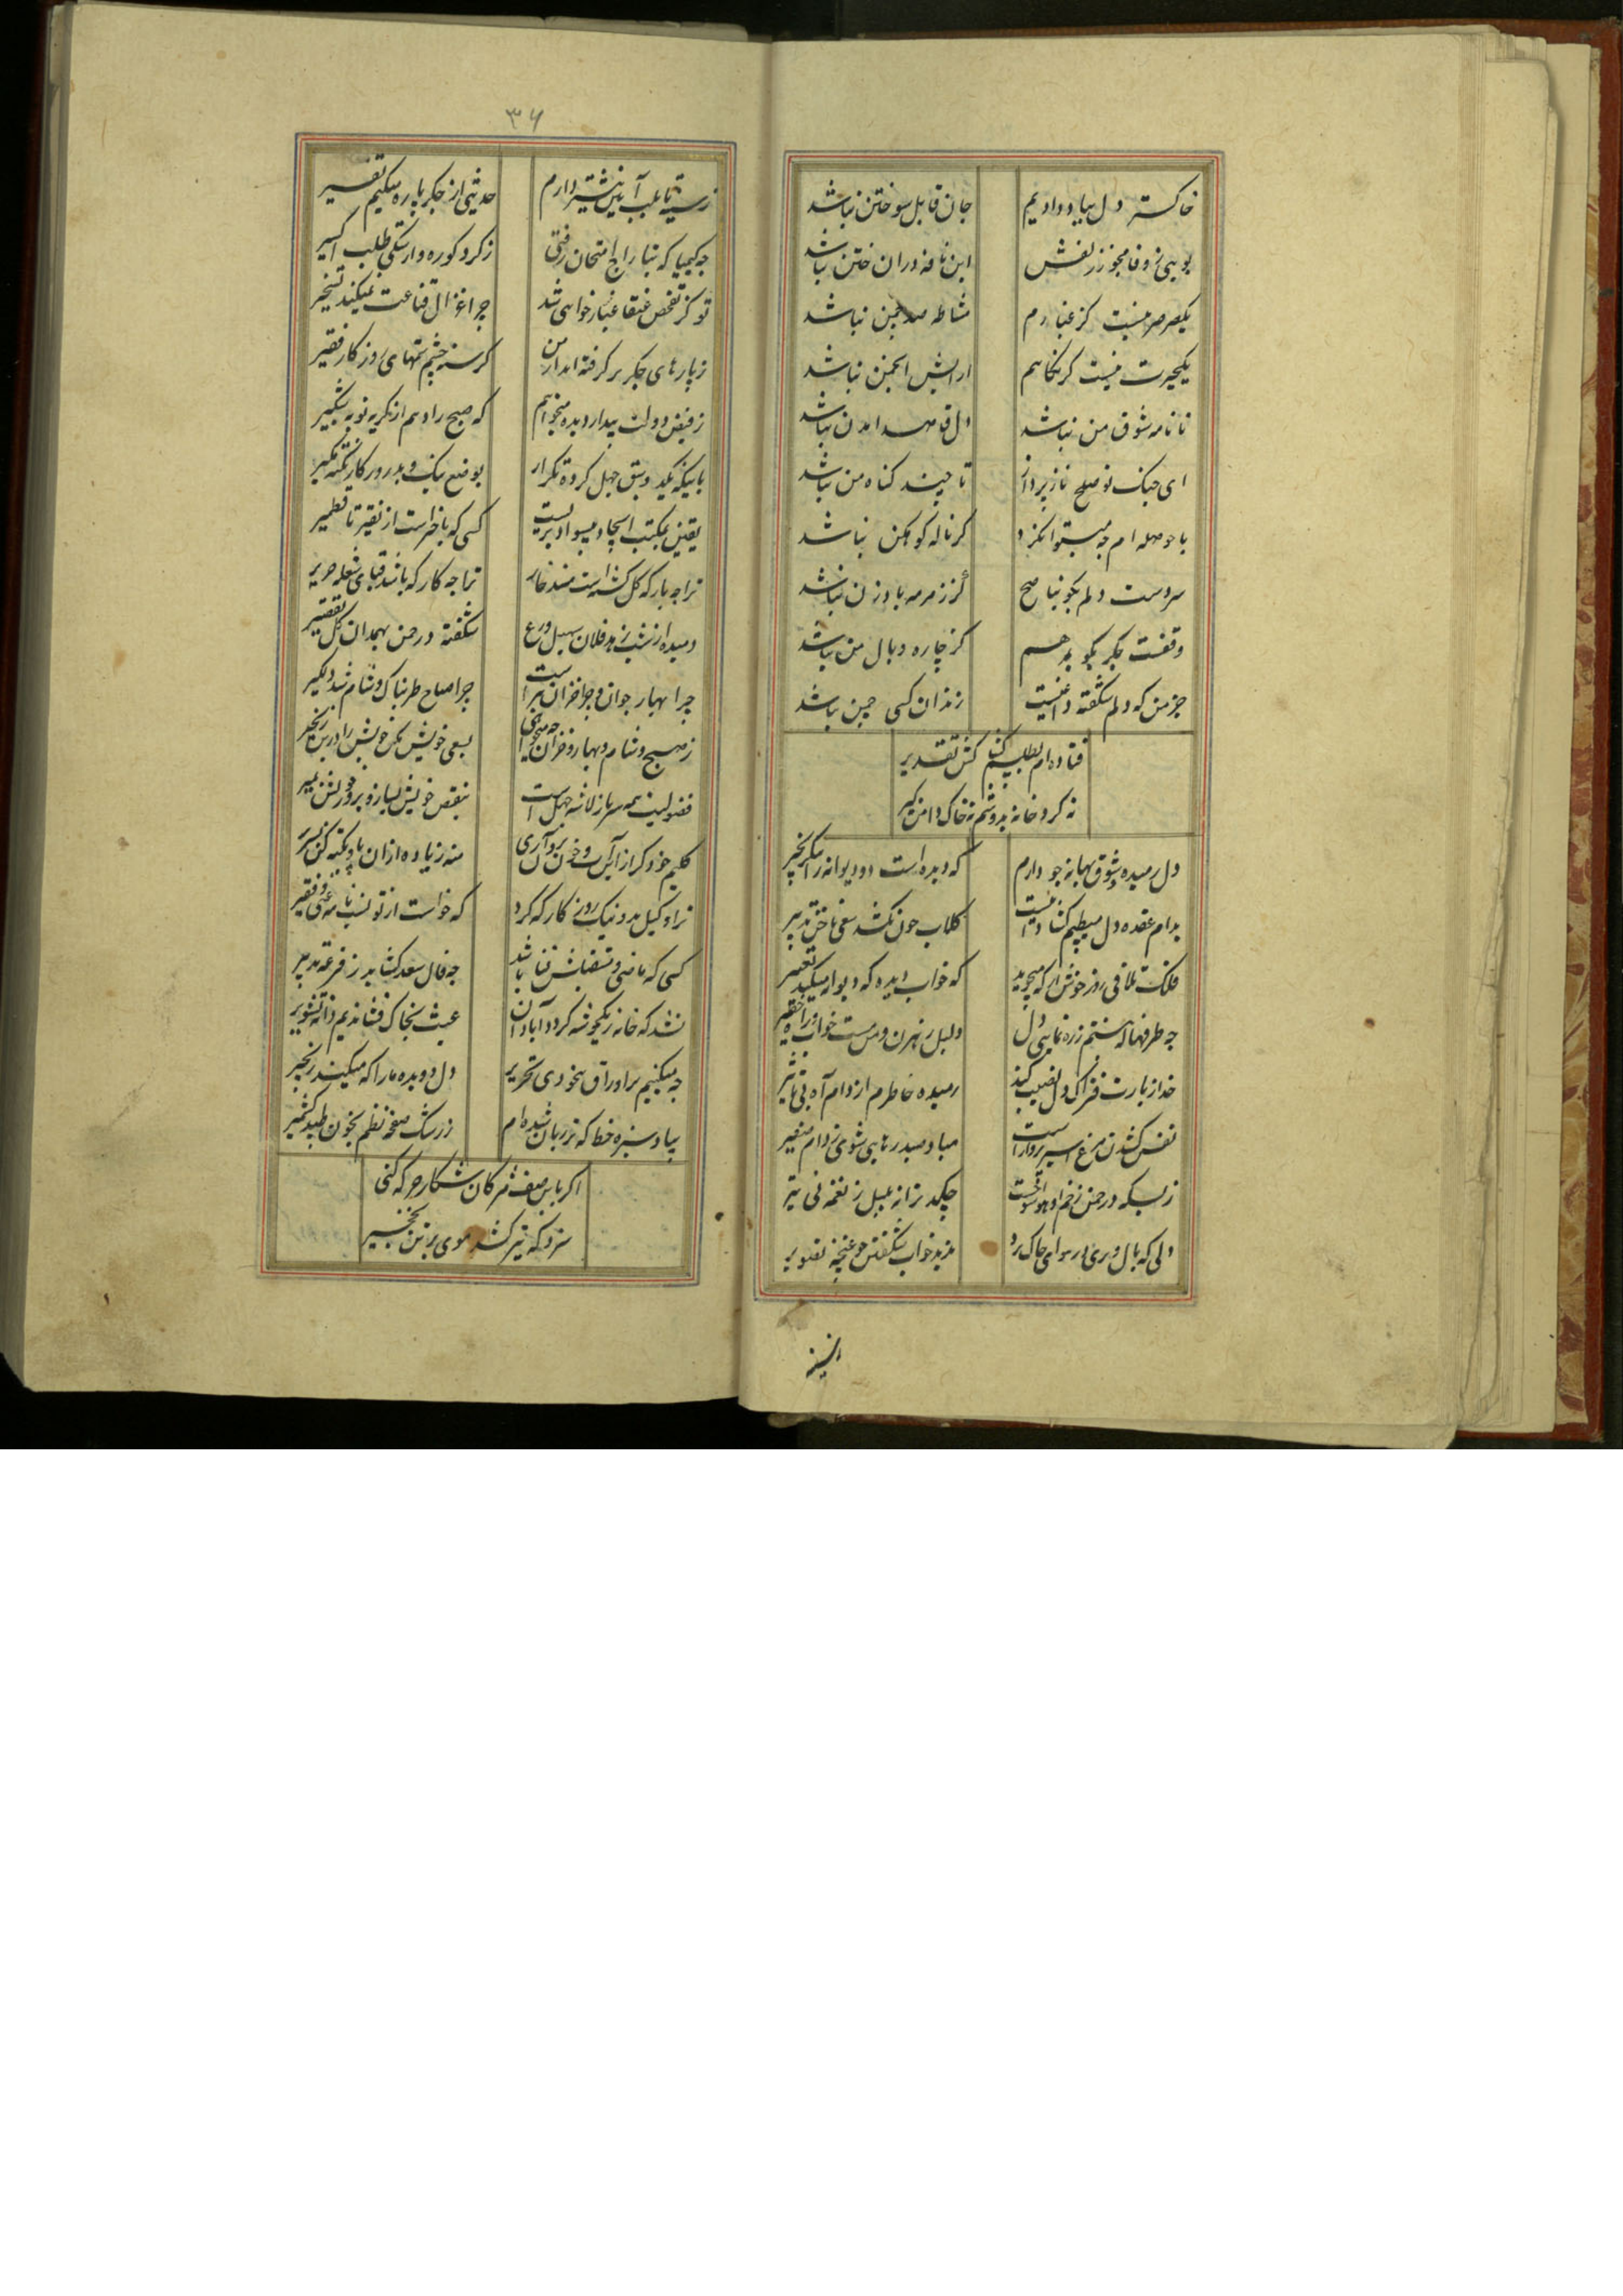 خاکستر دل بباد دادیم جان قابل سوختن نباشد
بویی ز وفا مجو ز زلفش این نافه در ان ختن نباشد
یکصرصر نیست کز غبارم مشاطه صد چمن نباشد
یکحیرت نیست کز نکاهم ارایش انجمن نباشد
تا نامه شوق من نباشد دل قاصد
ای جنک تو صلح ناز پرداز تا چند کناه من نباشد
با حوصله ام چه میتوانکرد کر ناله کوهکن نباشد
سر دوست دلم بکو بناصح کز زمزمه باد زن نباشد
وقفست جکر بکو بمرهم کز چاره وبال من نباشد
جز من که دلم شکفته داغیست زندان کسی چمن نباشد
فتاده ام بطلسم کشاکش تقدیر
نه کرد خانه بدوشم نه خاک دامن کیر
دل رمیده و شوق بهانه جو دارم که دیده است دو دیوانه را بیک زنجیر
بدام عقده دل میطپم کشادی نیست کلاب خون نکشد سعی ناخن تدبیر
فلک تلافی روز خوش از که میجوید که خواب دیده که دیوانه میکند تعبیر
چه طرفها که نبستم ز ره نمایی دل دلیل رهزن و من مست خواب و راه خطیر
خدا زیارت فتراک دل نصیب کند رمیده خاطرم از دام آه بی تاثیر
نفس کشیدن مرغ اسیر پرواز است مباد صید رهایی شوی ز دام صفیر
زبسکه در چمن زخم او هوس شوخست چکد ترانه بلبل ز نغمه نی تیر
دلی که بال و پری در هوای چاک نزد ندید خواب شکفتن چو غنچه تصویر
۳۶
ز سینه تا بلب آیین نیشتر دارم حدیثی از جکر پاره میکنم تفسیر
چه کیمیا که بتاراج امتحان رفتی ز کرد کوره وارستکی طلب اکسیر
تو کز تفحص عنقا غبار خواهی شد چرا غزال قناعت نمیکند تسخیر
ز پارهای جکر بر کرفته اند از من کرسنه چشم تمهای روزکار فقیر
ز فیض دولت بیدار دیده میخواهم که صبح را دهم از کریه توبه شبکیر
باینکه یکدو سبق جهل کرده تکرار بوضع نیک و بد روزکار نکته مکیر
یقین بمکتب ایجاد بیسواد تریست کسی که باخبر است از نقیر تا قطمیر
ترا چه بار که کل کشته است مسند خار ترا چه کار که باشد قبای شعله حریر
دمیده از شب زهد فلان سهیل ورع شکفته در چمن بهمدان کل تقصیر
چرا بهار جوان و چرا خزان پیر است چرا صباح طربناک و شام شد دلکیر
ز صبح و شام و بهار و خزان چه میخواهی بسعی خویش مکن خویش را درین زنجیر
فضولیت همه سرباز لاشه جهل است بنقص خویش بساز و بر وجود خویش بمیر
کلیم خود کر از آتش و خون بر آری منه زیاده ازان پا و تکیه کن
ترا وکیل بد و نیک روز کار که کرد که خواست از تو نسب نامه غنی و فقیر
کسی که ماضی و مستقبلش فنا باشد چه فال سعد کشاید ز قرعه تدبیر
نشد که خانه زیکخوشه کردد آبادان عبث بخاک فشاندیم دانه تشویر
چه میکنیم بر اوراق بیخودی تحریر دل دو دیده ما را که میکند زنجیر
بیاد سبزه خطا که تر زبان شده ام ز رشک صفحه نظم بخون طپد کشمیر
اکر باین صف مژکان شکار جرکه کنی
سزد که تیر کشد موی بر تن نخجیر